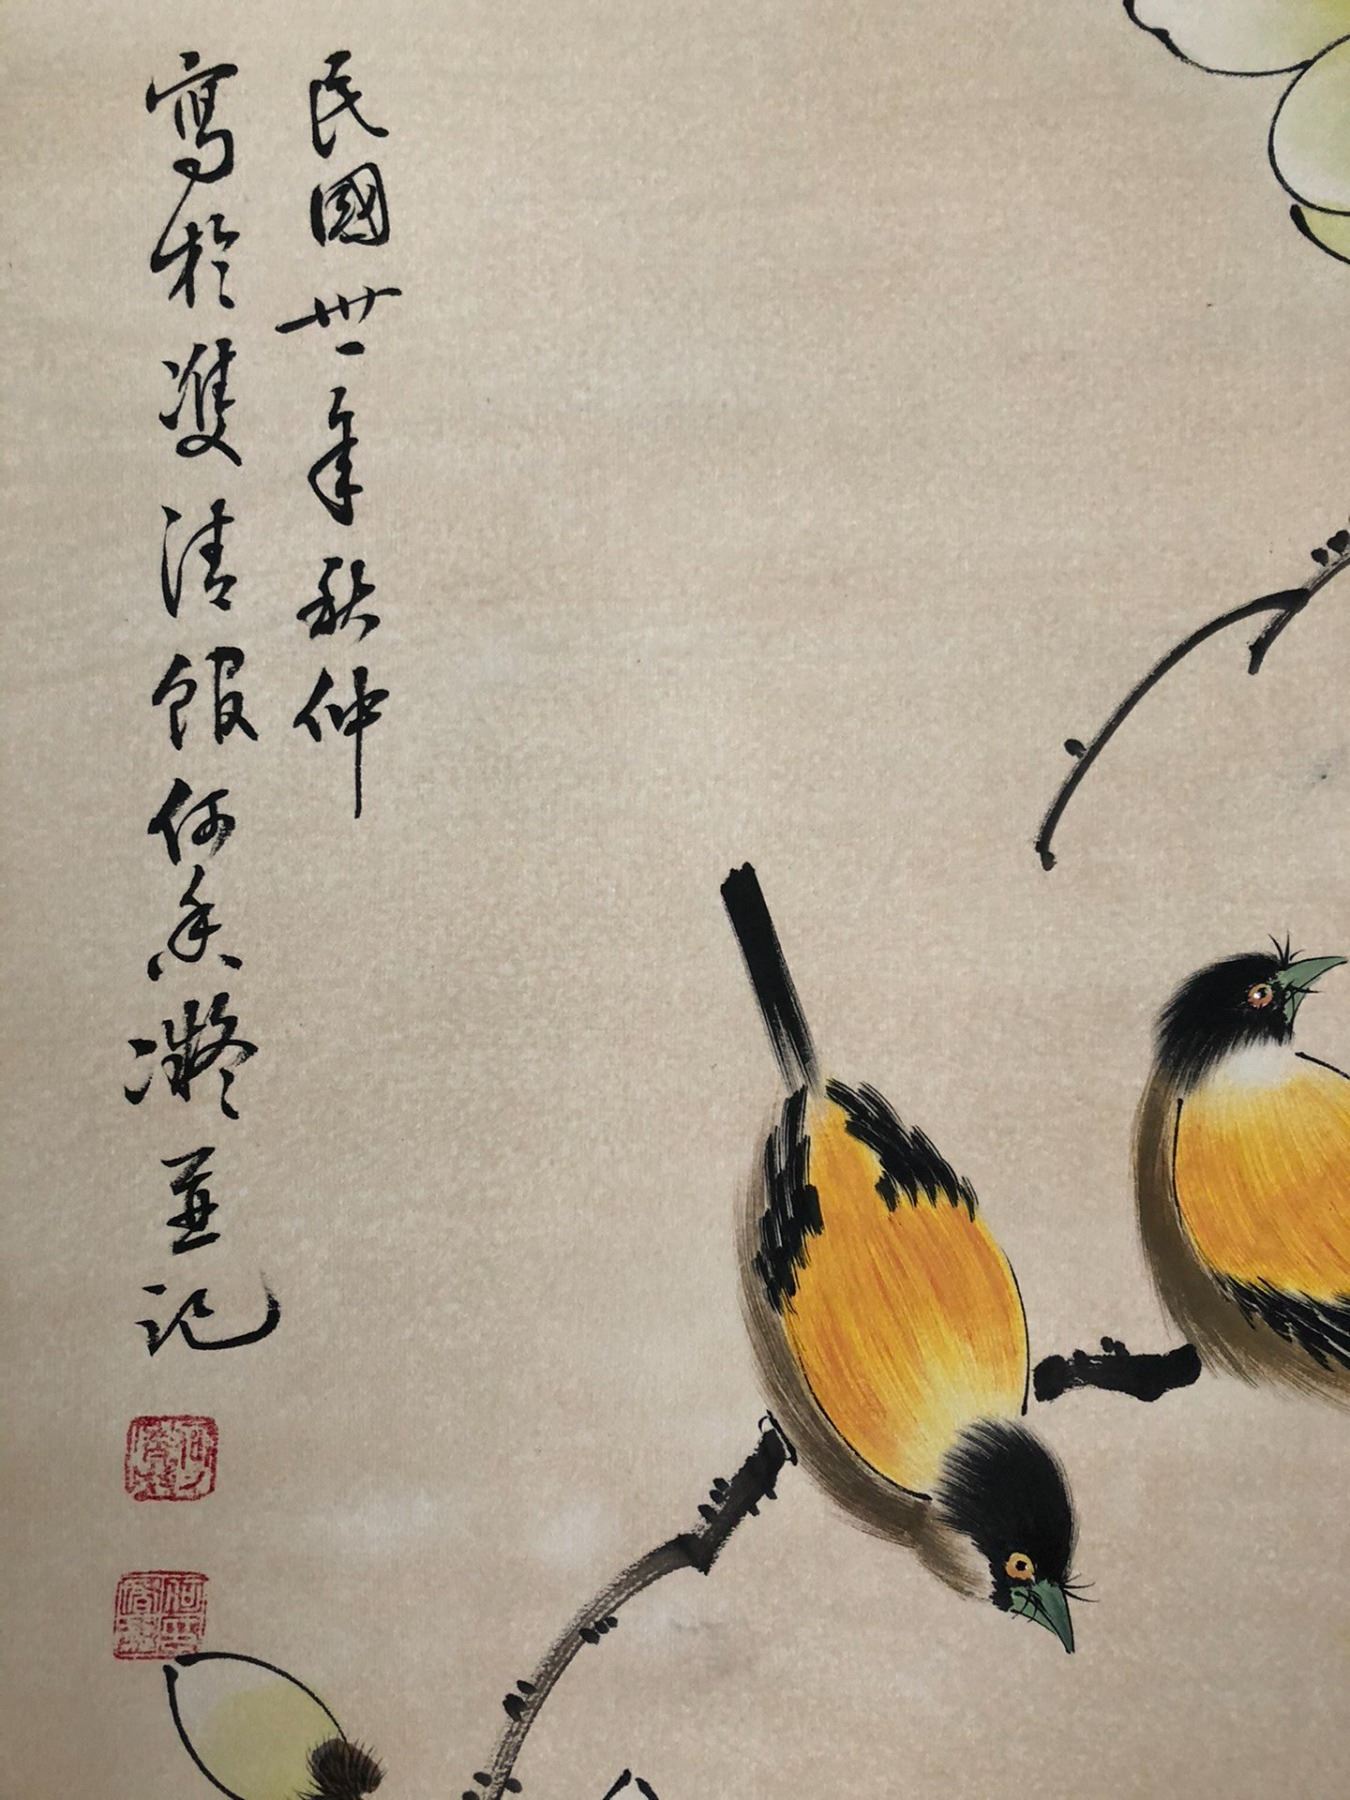 民國卅一年秋仲
寫於雙清館何香凝並記